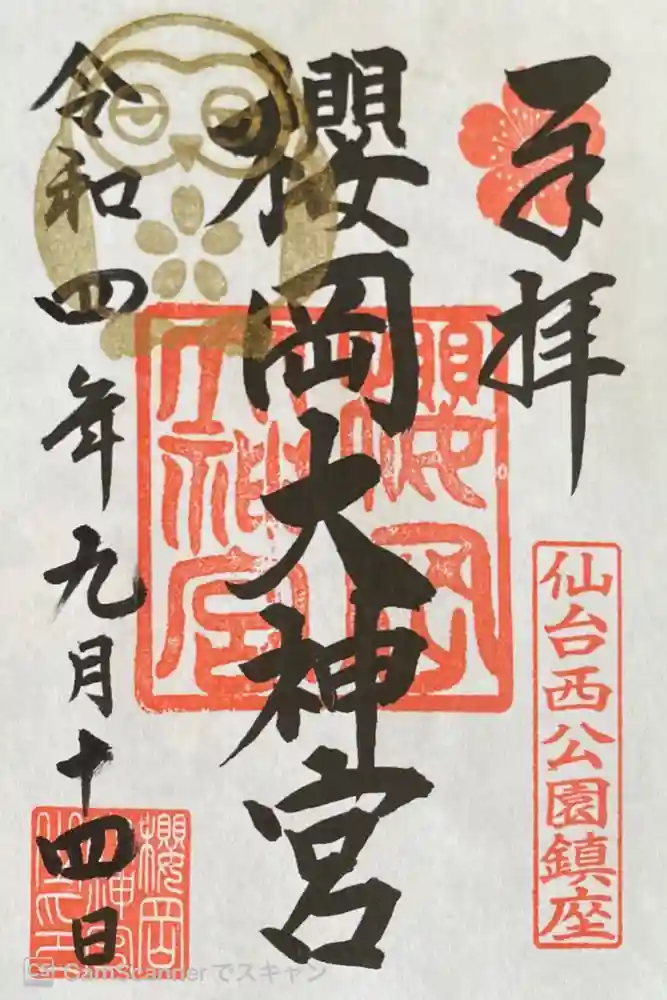 奉拝
仙台西公園鎮座
櫻岡大神宮
櫻岡大神宮
令和四年九月十四日
CS CamScannerでスキャン